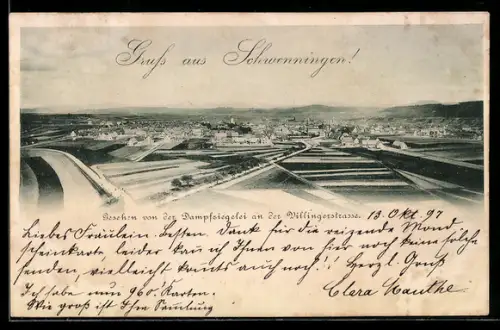 Gruß aus Schwenningen!
Gesehen von der Dampfziegelei an der Villingerstrasse.
13. Okt. 97
Liebes Fräulein. Besten Dank für die reizende Mond
scheinkarte, leider kan ich Ihnen von hier noch keine solche
senden, vielleicht komts auch noch!! Herzl. Gruß
Ich habe nun 960 Karten.
Clara Mauthe
Wie groß ist Ihre Samlung